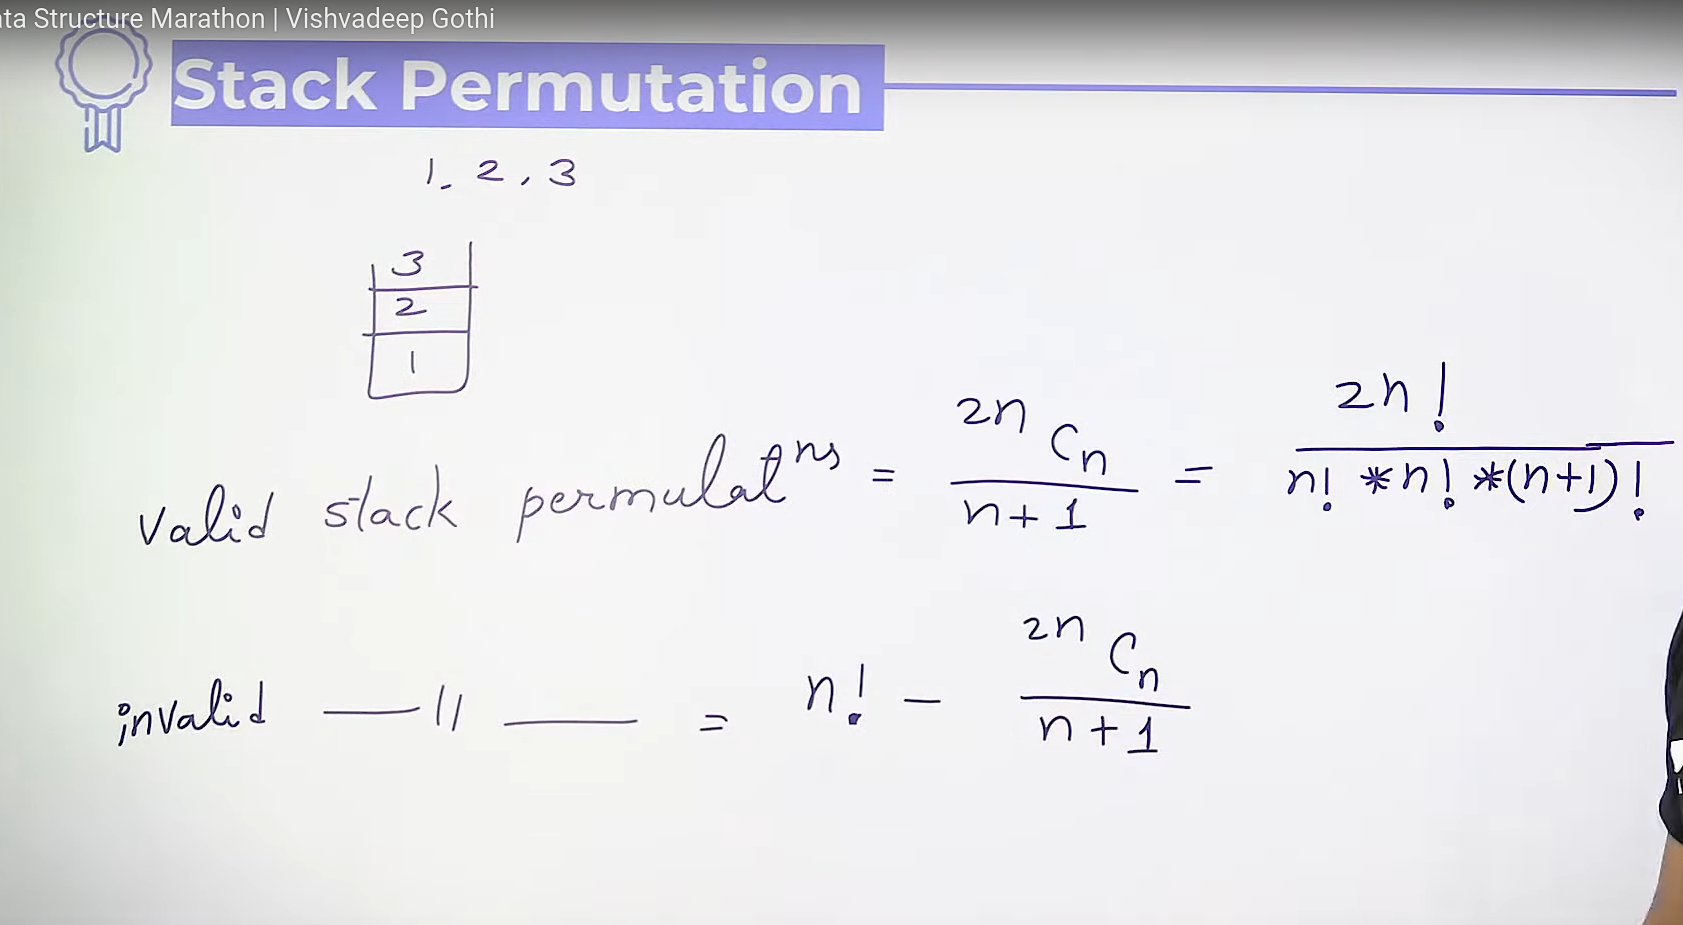 ata Structure Marathon | Vishvadeep Gothi
Stack Permutation
1, 2, 3
3
2
1
valid stack permutatⁿˢ = 2n C n / n+1 = 2n! / n! * n! * (n+1)!
invalid —〃— = n! − 2n C n / n+1